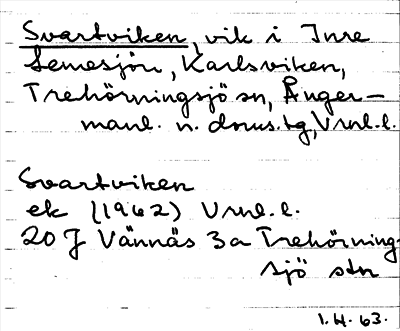 Svartviken, vik i Inre
Lemesjön, Karlsviken,
Trehörningsjö sn, Ånger-
manl. n. doms.tg, Vrnl.l.
Svartviken
ek (1962) Vrnl.l.
20 J Vännäs 3a Trehörning-
sjö stn
1.H.63.